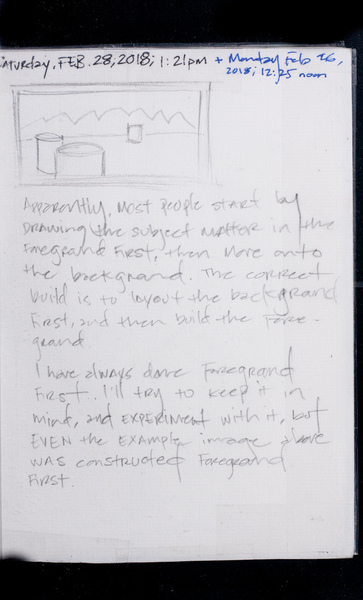 Saturday, FEB. 28, 2018; 1:21pm + Monday Feb 26,
2018; 12:25 noon
Apparently, most people start by
drawing the subject matter in the
foreground first, then move onto
the background. The correct
build is to layout the background
first, and then build the fore-
ground.
I have always done foreground
first. I'll try to keep it in
mind, and EXPERIMENT with it, but
EVEN the EXAMPLE image above
was constructed foreground
first.